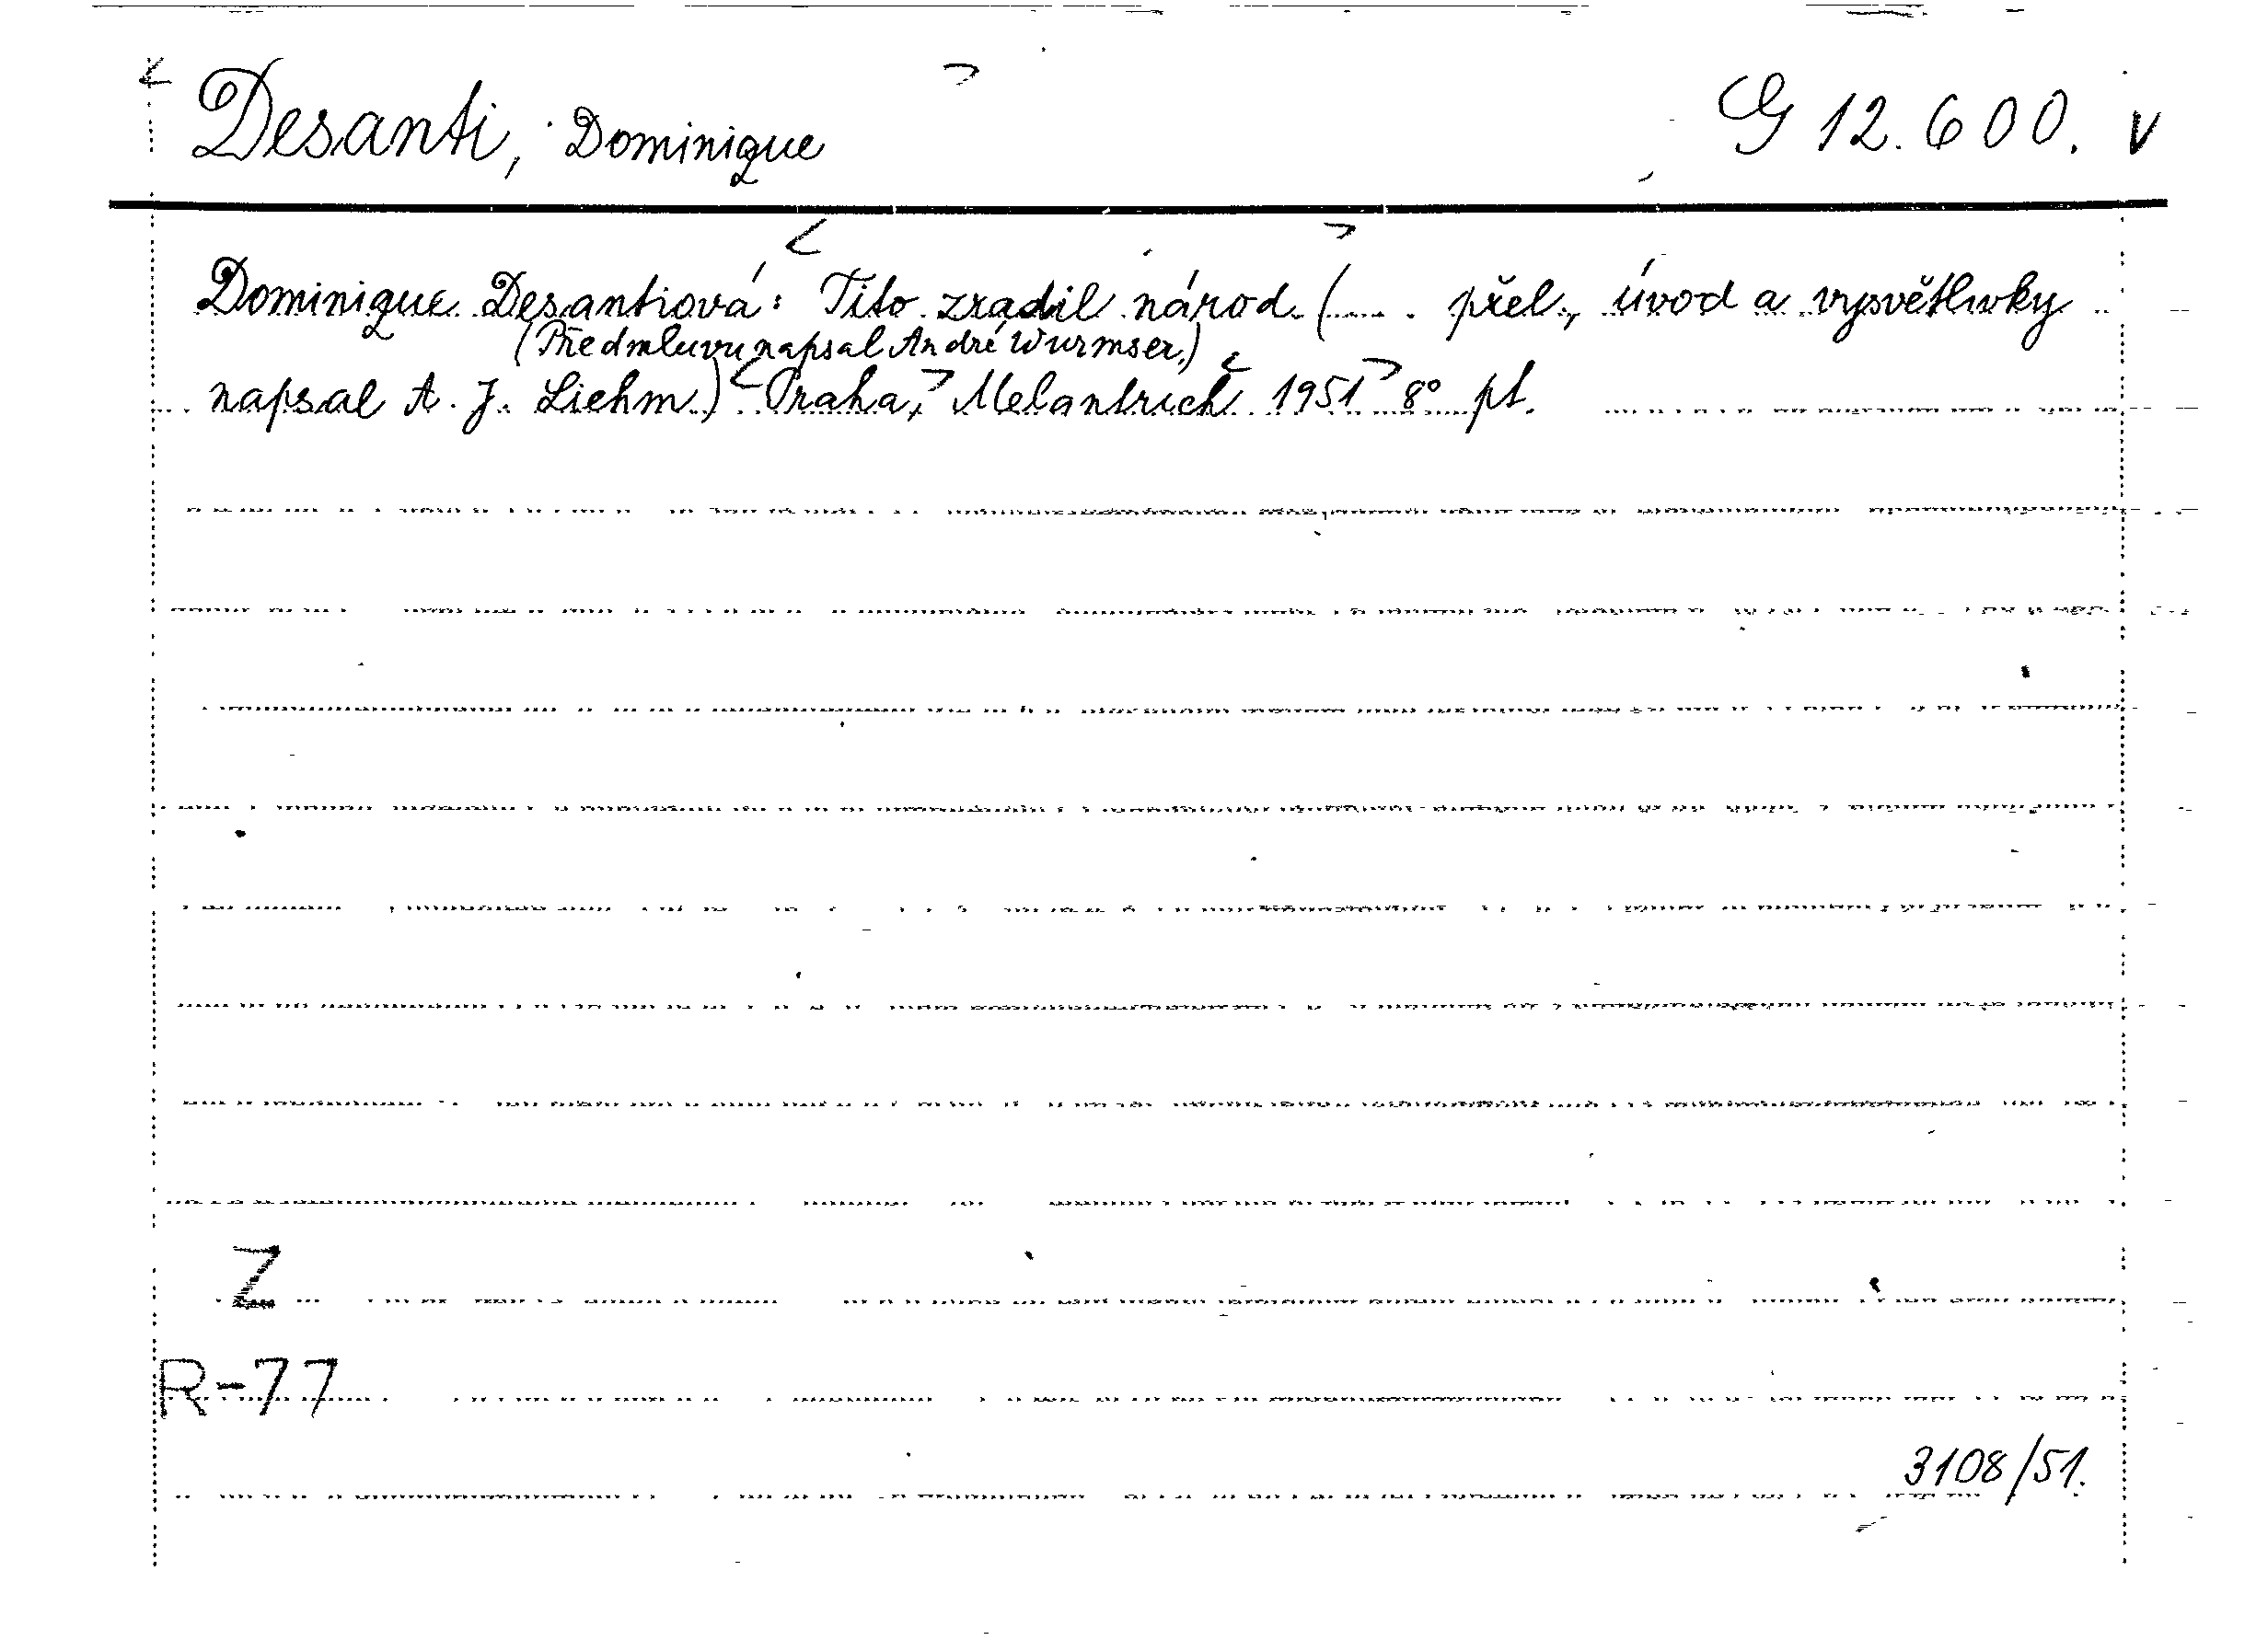 Desanti, Dominique G 12.600. v
Dominique Desantiová: Tito zradil národ. (... . přel., úvod a vysvětlivky
(Předmluvu napsal André Wurmser.)
napsal A. J. Liehm.) Praha, Melantrich 1951 8° pt.
Z
R-77
3108/51.